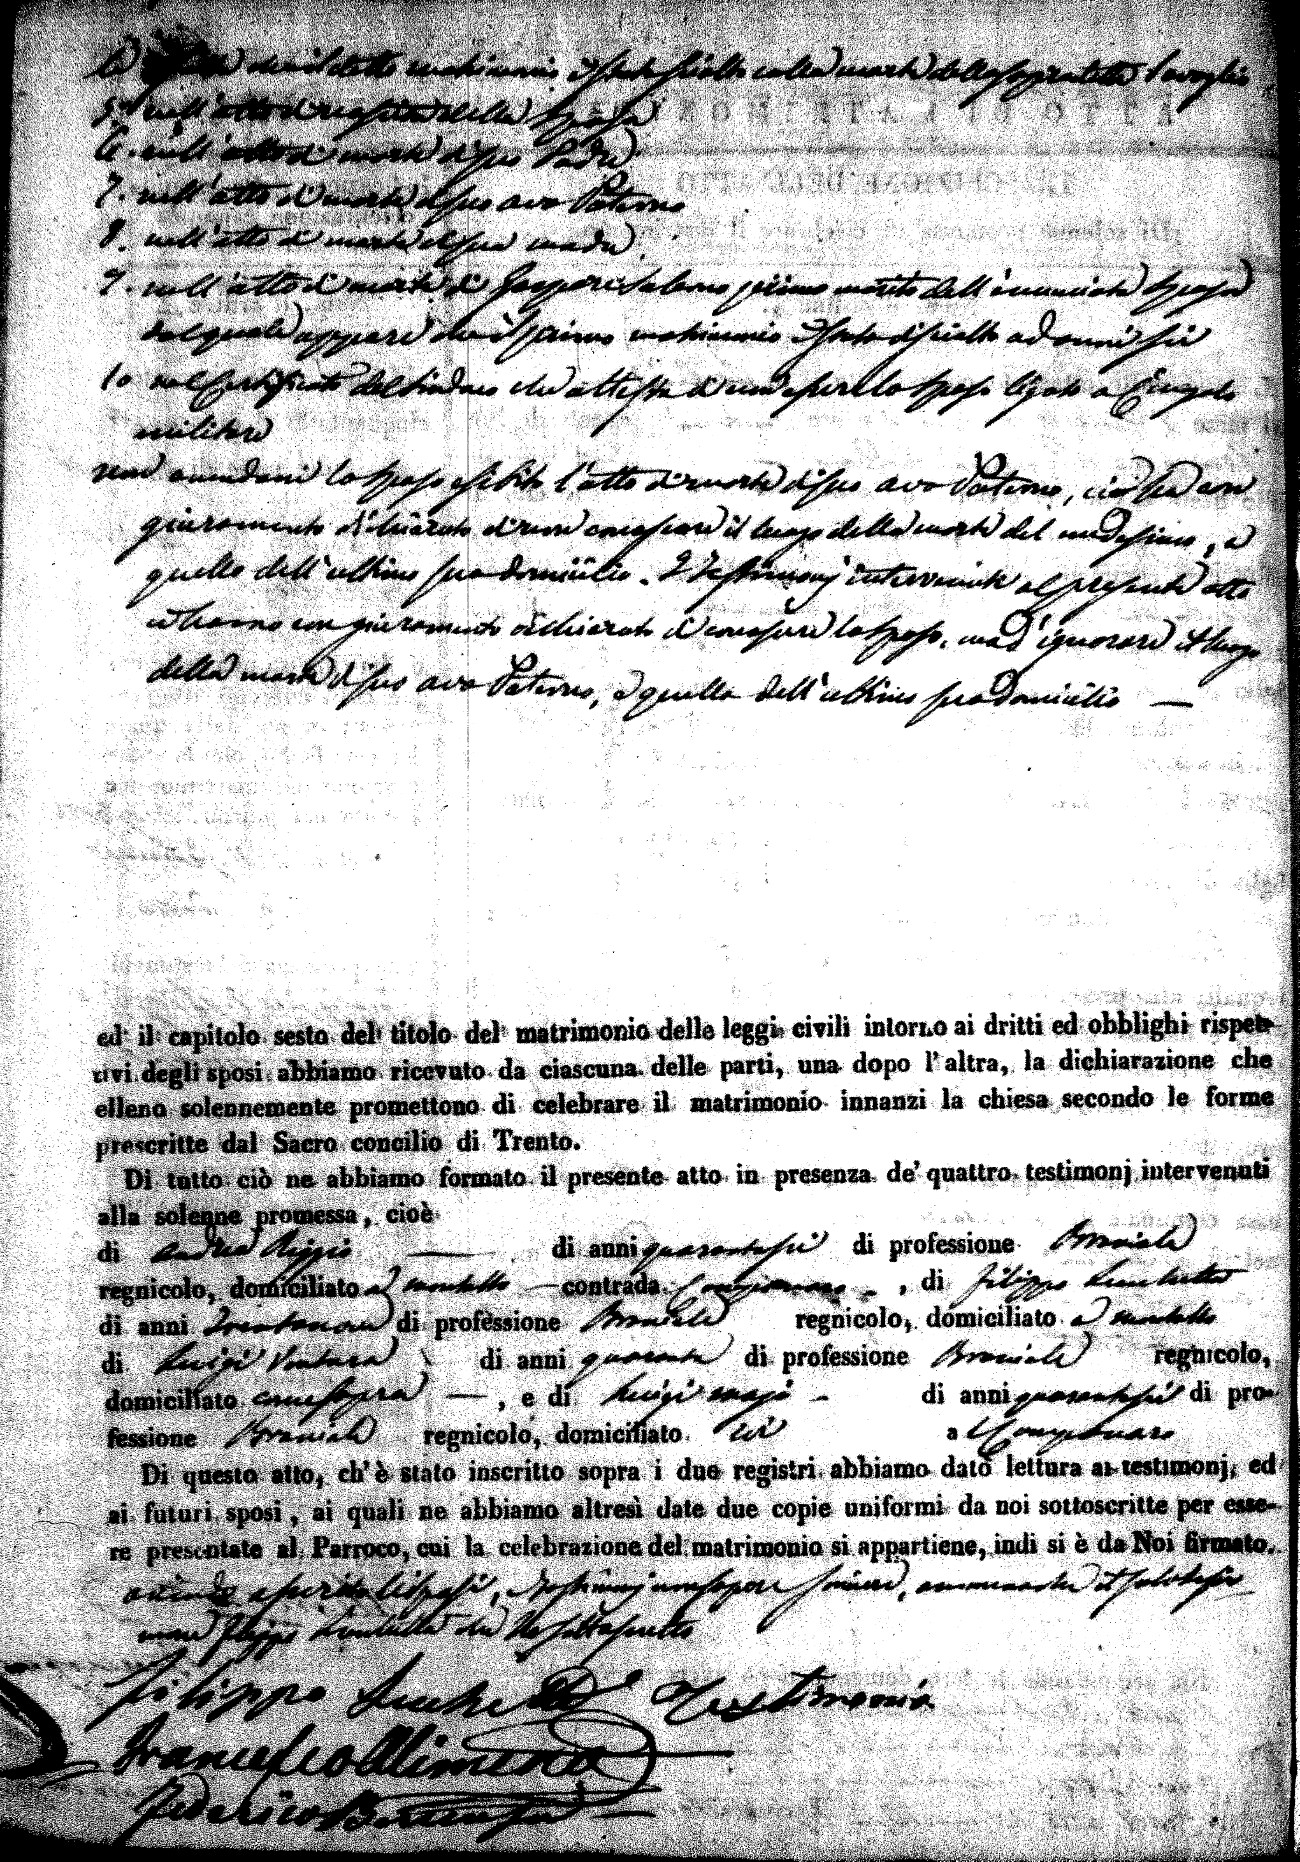 che il detto matrimonio è stato sciolto colla morte della
5. nell'atto di nascita della sposa
6. nell'atto di morte di suo Padre
7. nell'atto di morte di suo avo Paterno
8. nell'atto di morte di sua madre
9. nell'atto di morte di Gaspare Salerno primo marito dell'enunciata sposa
dal quale appare che il primo matrimonio è stato disciolto
10 nel certificato del Sindaco che attesta di non essere lo sposo ligato a Cingolo
militare
non avendomi lo sposo esibito l'atto di morte di suo avo Paterno, ciò sia con
giuramento dichiarato di non conoscere il luogo della morte del medesimo, e
quello dell'ultimo suo domicilio. I Testimonj intervenienti al presente atto
hanno con giuramento dichiarato di conoscere lo sposo, ma d'ignorare il luogo
della morte di suo avo Paterno, e quello dell'ultimo suo domicilio —
ed il capitolo sesto del titolo del matrimonio delle leggi civili intorno ai dritti ed obblighi rispet-
tivi degli sposi abbiamo ricevuto da ciascuna delle parti, una dopo l'altra, la dichiarazione che
elleno solennemente promettono di celebrare il matrimonio innanzi la chiesa secondo le forme
prescritte dal Sacro concilio di Trento.
Di tutto ciò ne abbiamo formato il presente atto in presenza de' quattro testimonj intervenuti
alla solenne promessa, cioè
di Andrea Riggio — di anni quarantasei di professione Braciale
regnicolo, domiciliato a — contrada , di Filippo
di anni di professione Braciale regnicolo, domiciliato a
di Luigi Ventura di anni quaranta di professione Braciale regnicolo,
domiciliato come sopra — , e di Luigi di anni quarantasei di pro-
fessione Braciale regnicolo, domiciliato ivi a
Di questo atto, ch'è stato inscritto sopra i due registri abbiamo dato lettura ai testimonj, ed
ai futuri sposi, ai quali ne abbiamo altresì date due copie uniformi da noi sottoscritte per esse-
re presentate al Parroco, cui la celebrazione del matrimonio si appartiene, indi si è da Noi firmato.
avendo asserito li sposi, e testimonj non sapere scrivere, ammenoché il
Filippo che ha sottoscritto
Filippo Testimonio
Francesco Alimena
Federico